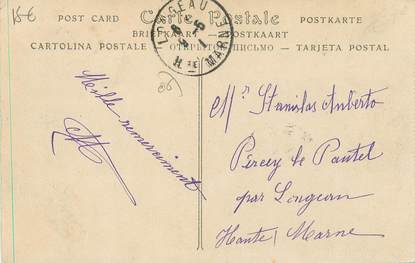 15€
Carte Postale
POST CARD
POSTKARTE
BRIEFKAART
POSTKAART
CARTOLINA POSTALE
ОТКРЫТОЕ ПИСЬМО
TARJETA POSTAL
LONGEAU
Hte MARNE
Mille remerciment
Mr Stanilas Auberto
Percey le Pautel
par Longeau
Haute Marne